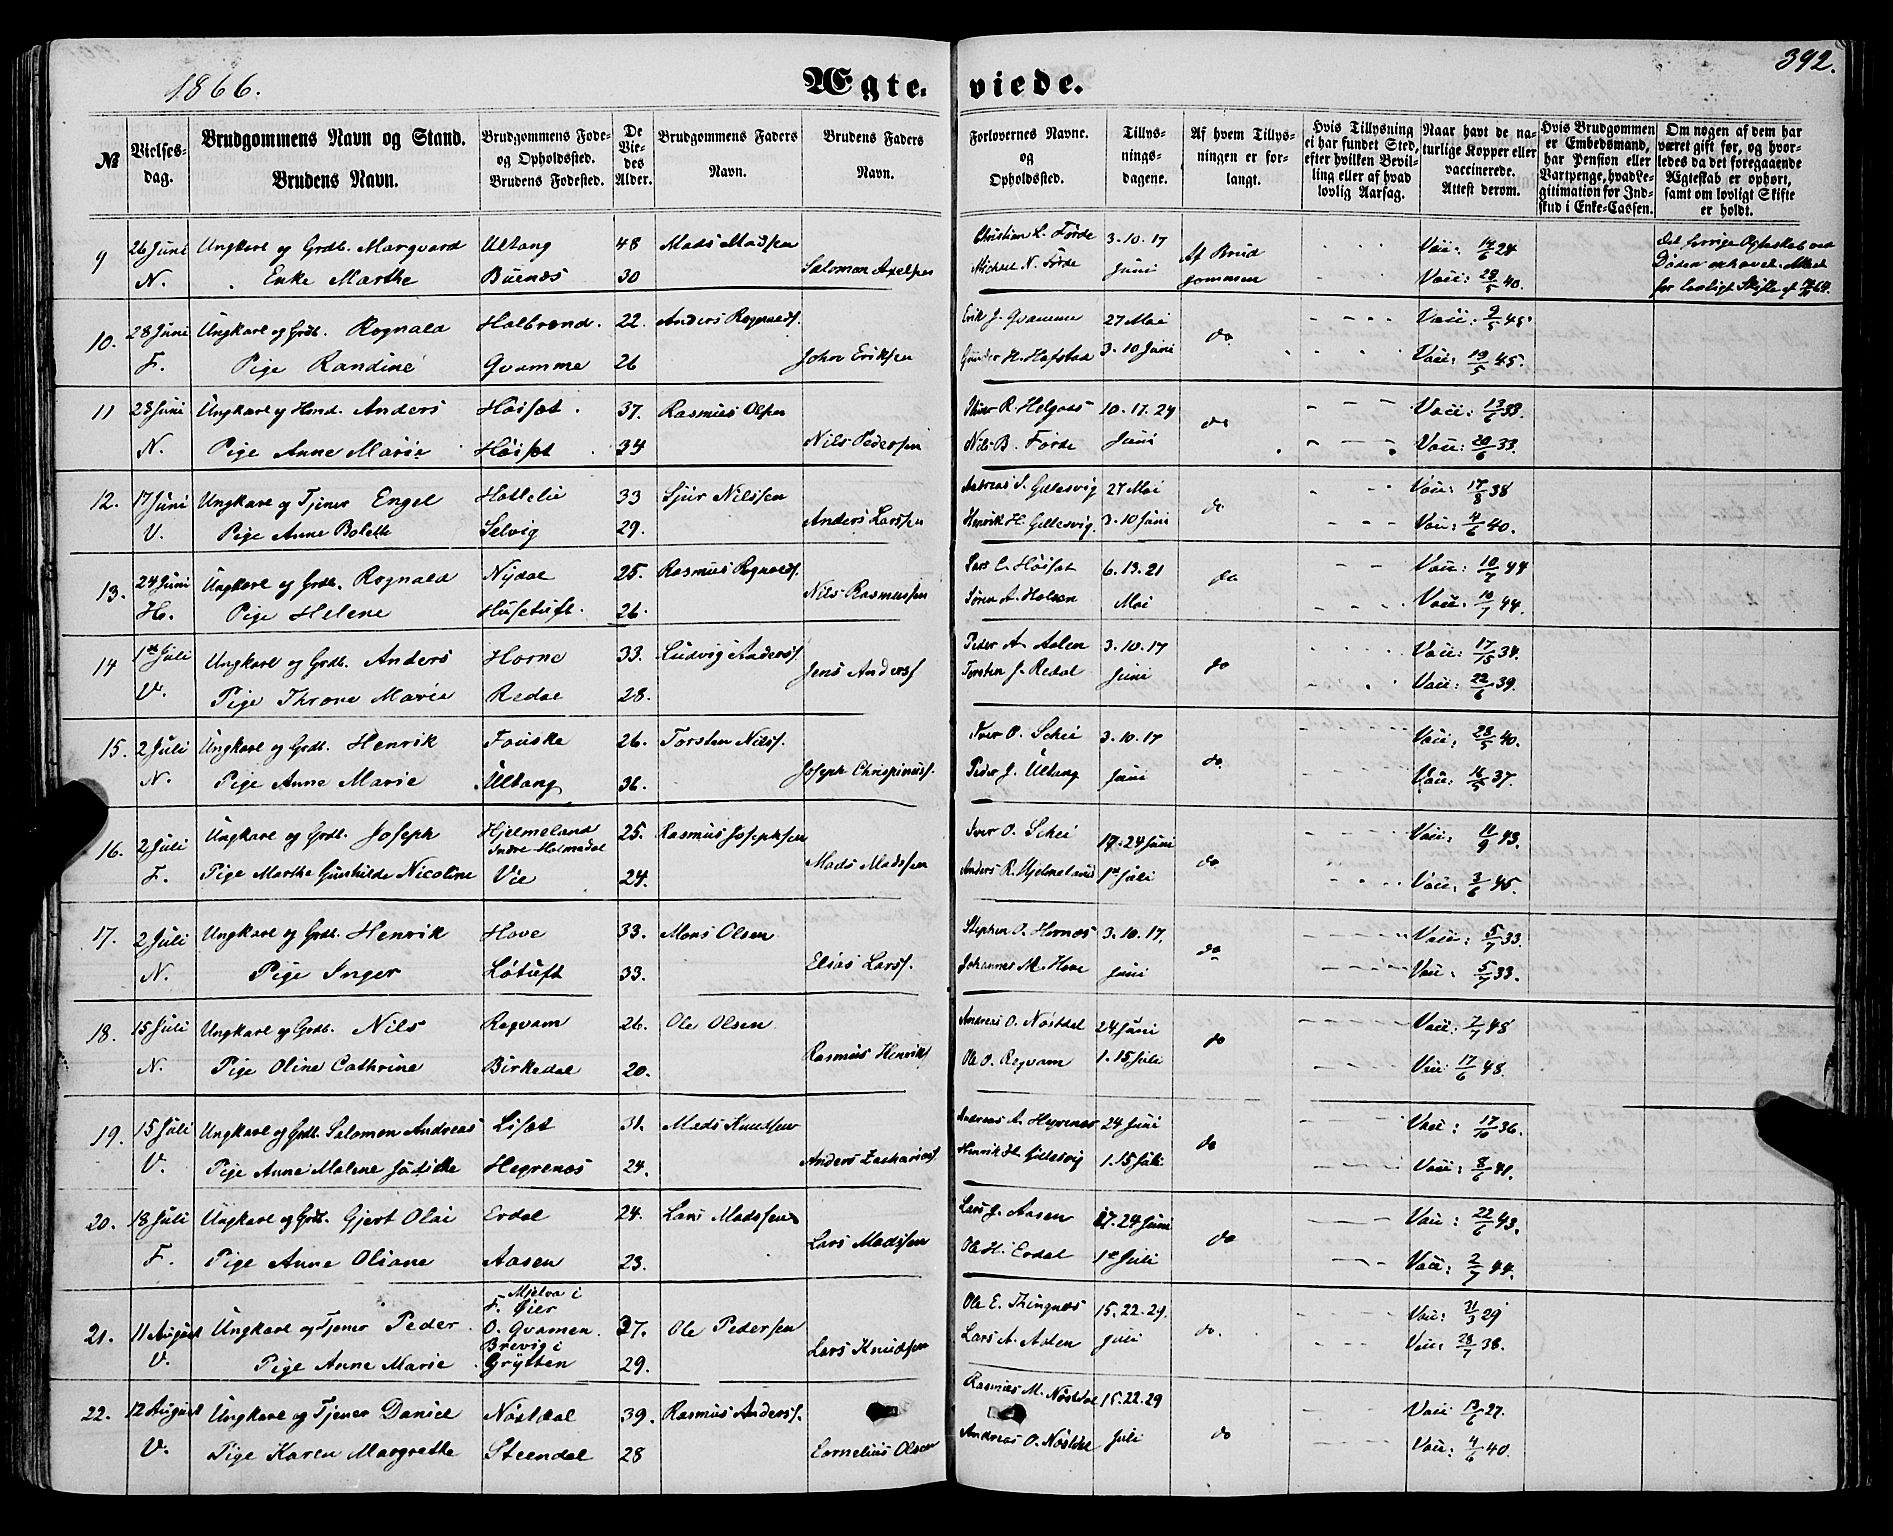 392.
1866.
Ægte- viede.
№
Vielses-dag.
Brudgommens Navn og Stand.
Brudens Navn.
Brudgommens Føde- og Opholdssted.
Brudens Fødested.
De Viedes Alder.
Brudgommens Faders Navn.
Brudens Faders Navn.
Forlovernes Navne. og Opholdssted.
Tillysningsdagene.
Af hvem Tillysningen er forlangt.
Hvis Tillysning ei har fundet Sted, efter hvilken Bevilling eller af hvad lovlig Aarsag.
Naar havt de naturlige Kopper eller vaccinerede. Attest derom.
Hvis Brudgommen er Embedsmand, har Pension eller Vartpenge, hvad Legitimation for Indskud i Enke-Cassen.
Om nogen af dem har været gift før, og hvorledes da det foregaaende Ægteskab er ophørt, samt om lovligt Skifte er holdt.
9 26 Juni Ungkarl og Grdb. Marqvard Ultang 48 Mads Madsen Christian L. Førde 3.10.17 Af Brud Vac: 14/6 24 Det forrige Ægteskab ved
N. Enke Marthe Buenæs 30 Salomon Axelsen Michael N. Førde Juni gommen Vac: 28/5 40. Døden ophævet. Attest for lovligt Skifte af
10. 28 Juni Ungkarl og Grdb. Rognald Halbrend. 22. Anders Rognalds. Erik J. Qvamme 27 Mai do Vac: 9/5 45.
F. Pige Randine Qvamme 26 John Eriksen Gunder H. Hafstad 3.10 Juni Vac: 19/5 45.
11 28 Juni Ungkarl og Hmd. Anders Høisæt. 37. Rasmus Olsen Iver R. Helgaas 10.17.24 do Vac: 13/6 33.
N. Pige Anne Marie Høisæt 34 Nils Pedersen Nils B. Førde Juni Vac: 20/6 33.
12. 17 Juni Ungkarl og Tjener Engel Hattelie 33 Sjur Nilssen Andreas S. Gillesvig 27 Mai do Vac: 17/8 38
V. Pige Anne Bolette Selvig 29. Anders Larsen Henrik H. Gillesvig 3.10 Juni Vac: 4/6 40.
13. 24 Juni Ungkarl og Grdb. Rognald Nydal 25. Rasmus Rognalds. Lars E. Høisæt 6.13.21 do Vac: 10/7 44
H. Pige Helene Husetuft. 26. Nils Rasmussen Søren A. Holsen Mai Vac: 10/7 44.
14 1ste Juli Ungkarl og Grdb. Anders Horne 33. Ludvig Anders. Peder A. Aalen 3.10.17 do Vac: 17/15 34.
V. Pige Throne Marie Redal 28. Jens Anders. Torsten J. Redal Juni Vac: 22/6 39.
15. 2 Juli Ungkarl og Grdb. Henrik Fauske 26. Torsten Nils. Iver O. Schei 3.10.17 do. Vac: 28/5 40.
N. Pige Anne Marie Ultang 36. Joseph Chrispinus. Peder J. Ultang Juni Vac: 16/5 37.
16. 2 Juli Ungkarl og Grdb. Joseph Hjelmeland Indre Holmedal 25. Rasmus Josephsen Iver O. Schei 17.24 Juni do Vac: 11/9 43.
F. Pige Marthe Gunhilde Nicoline Vie 24. Mads Madssen Anders R. Hjelmeland 1ste Juli Vac: 3/6 45.
17. 2 Juli Ungkarl og Grdb. Henrik Hove 33. Mons Olsen Stephen O. Hornæs 3.10.17. do Vac: 5/7 33.
N. Pige Inger Løtuft 33. Elias Lars. Johannes M. Hove Juni Vac: 5/7 33.
18. 15 Juli Ungkarl og Grdb. Nils Rogvam 26. Ole Olsen Andreas O. Nøstdal 24 Juni do Vac: 7/7 48
N. Pige Oline Cathrine Birkedal 20. Rasmus Henriks. Ole O. Rogvam 1.15 Juli Vac: 17/6 48.
19. 15 Juli Ungkarl og Grdb. Salomon Andreas Lisæt 31. Mads Knudsen Andreas A. Heyrenæs 24 Juni do Vac: 17/10 36.
V. Pige Anne Malene Judithe Hegrenæs 24. Anders Zacharias. Henrik H. Gillesvig 1.15 Juli Vac: 8/6 41.
20. 18 Juli Ungkarl og Grdb. Gjert Olai Erdal 24. Lars Madssen Lars J. Aasen 17.24 Juni do Vac: 22/6 43.
F. Pige Anne Oliane Aasen 23. Lars Madssen Ole H. Erdal 1ste Juli Vac: 2/7 44.
21. 11 August Ungkarl og Tjener Peder Mjelva i F. Øier O. Qvamen. 37. Ole Pedersen Ole E. Thingnæs 15.22.29. do. Vac: 21/3 29
V. Pige Anne Marie Brevig i Grytten 29. Lars Knudsen Lars A. Aalen Juli Vac: 28/7 38.
22. 12 August Ungkarl og Tjener Daniel Nøstdal 39. Rasmus Anders. Rasmus M. Nøstdal 15.22.29 do Vac: 13/6 27.
V. Pige Karen Margrethe Steendal 28 Cornelius Olsen Andreas O. Nøstdal Juli Vac: 4/6 40.